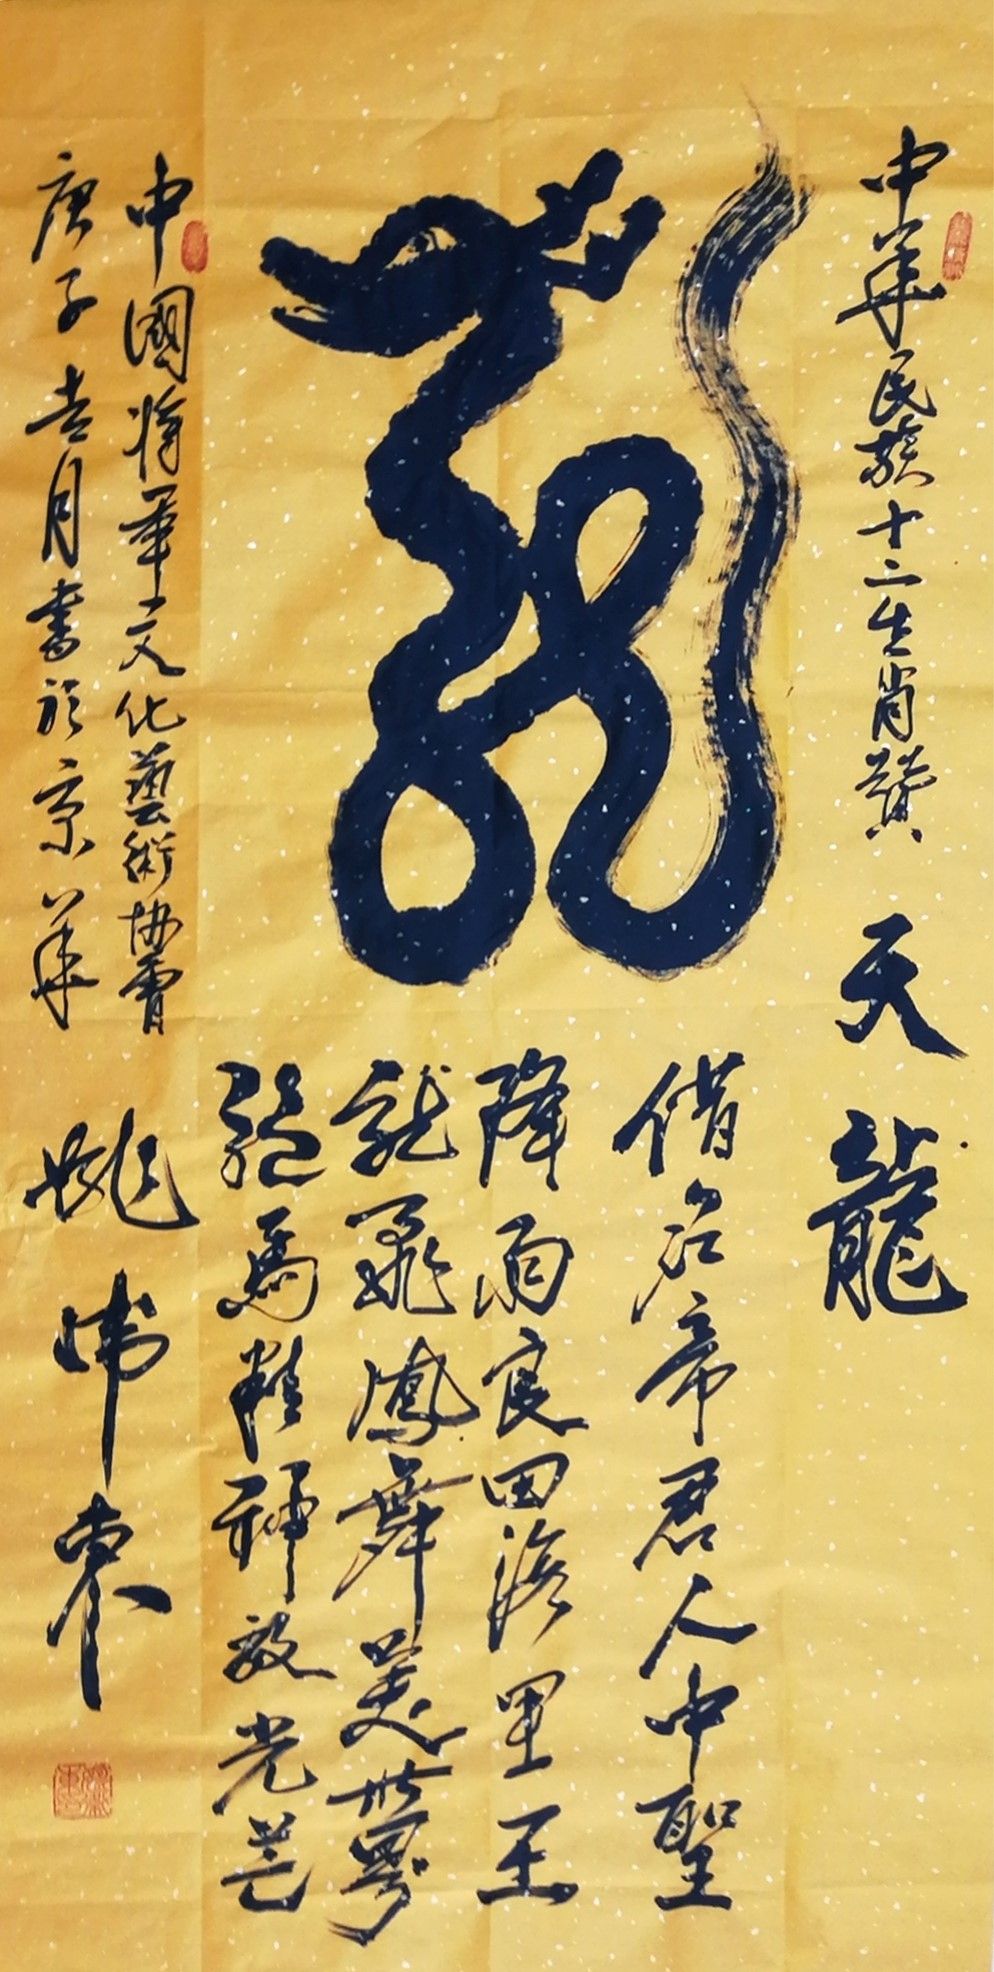 中華民族十二生肖贊 天龍
龍
借名帝君人中聖
降雨良田海里王
龍飛鳳舞美世界
龍馬精神放光芒
中國將軍文化藝術協會
庚子吉月書於京華
姚偉東